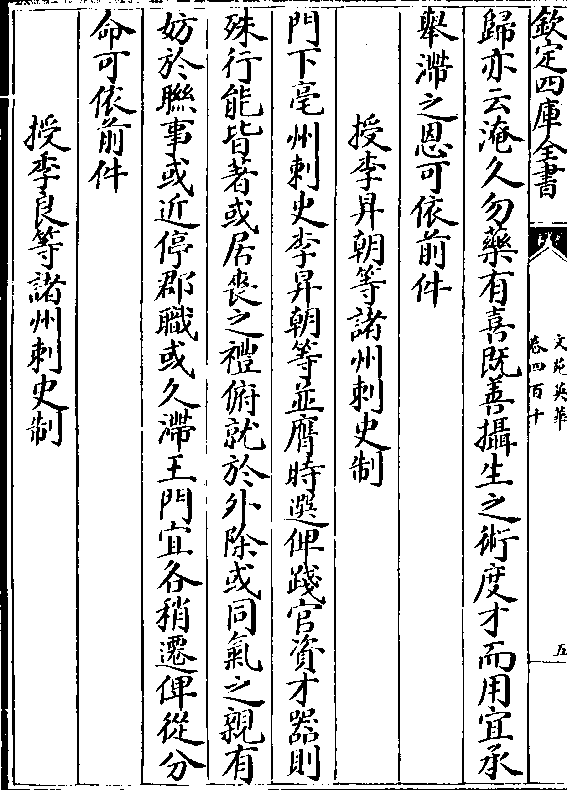 欽定四庫全書
文苑英華
卷四百十
五
歸亦云淹久勿藥有喜既善攝生之術度才而用宜承
舉滯之恩可依前件
授李昇朝等諸州刺史制
門下亳州刺史李昇朝等並膺時選俾踐官資才器則
殊行能皆著或居喪之禮俯就於外除或同氣之親有
妨於聯事或近停郡職或久滯王門宜各稍遷俾從分
命可依前件
授李良等諸州刺史制